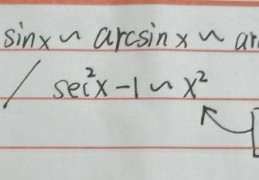 sinx ∽ arcsinx ∽ ar
sec²x-1 ∽ x²